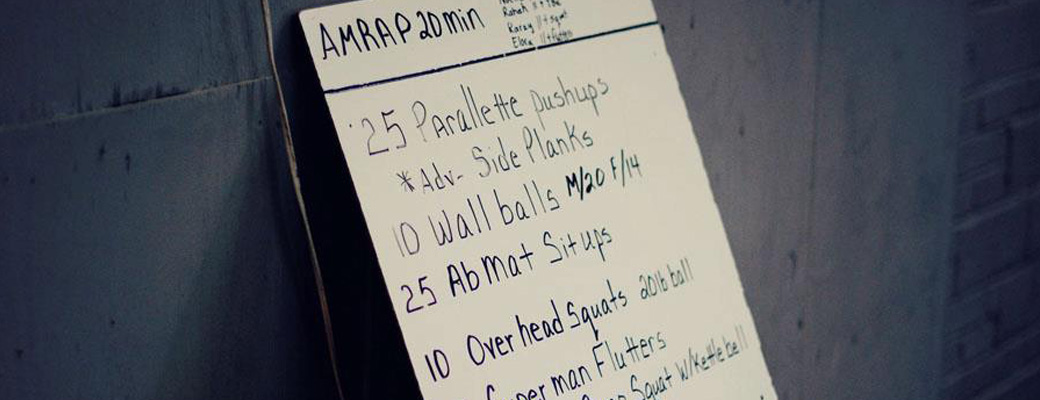 AMRAP 20 min
Elora 11+flutters
25 Parallette pushups
*Adv- Side Planks
10 Wall balls M/20 F/14
25 AbMat Situps
10 Overhead Squats 20lb ball
Superman Flutters
Squat W/Kettlebell